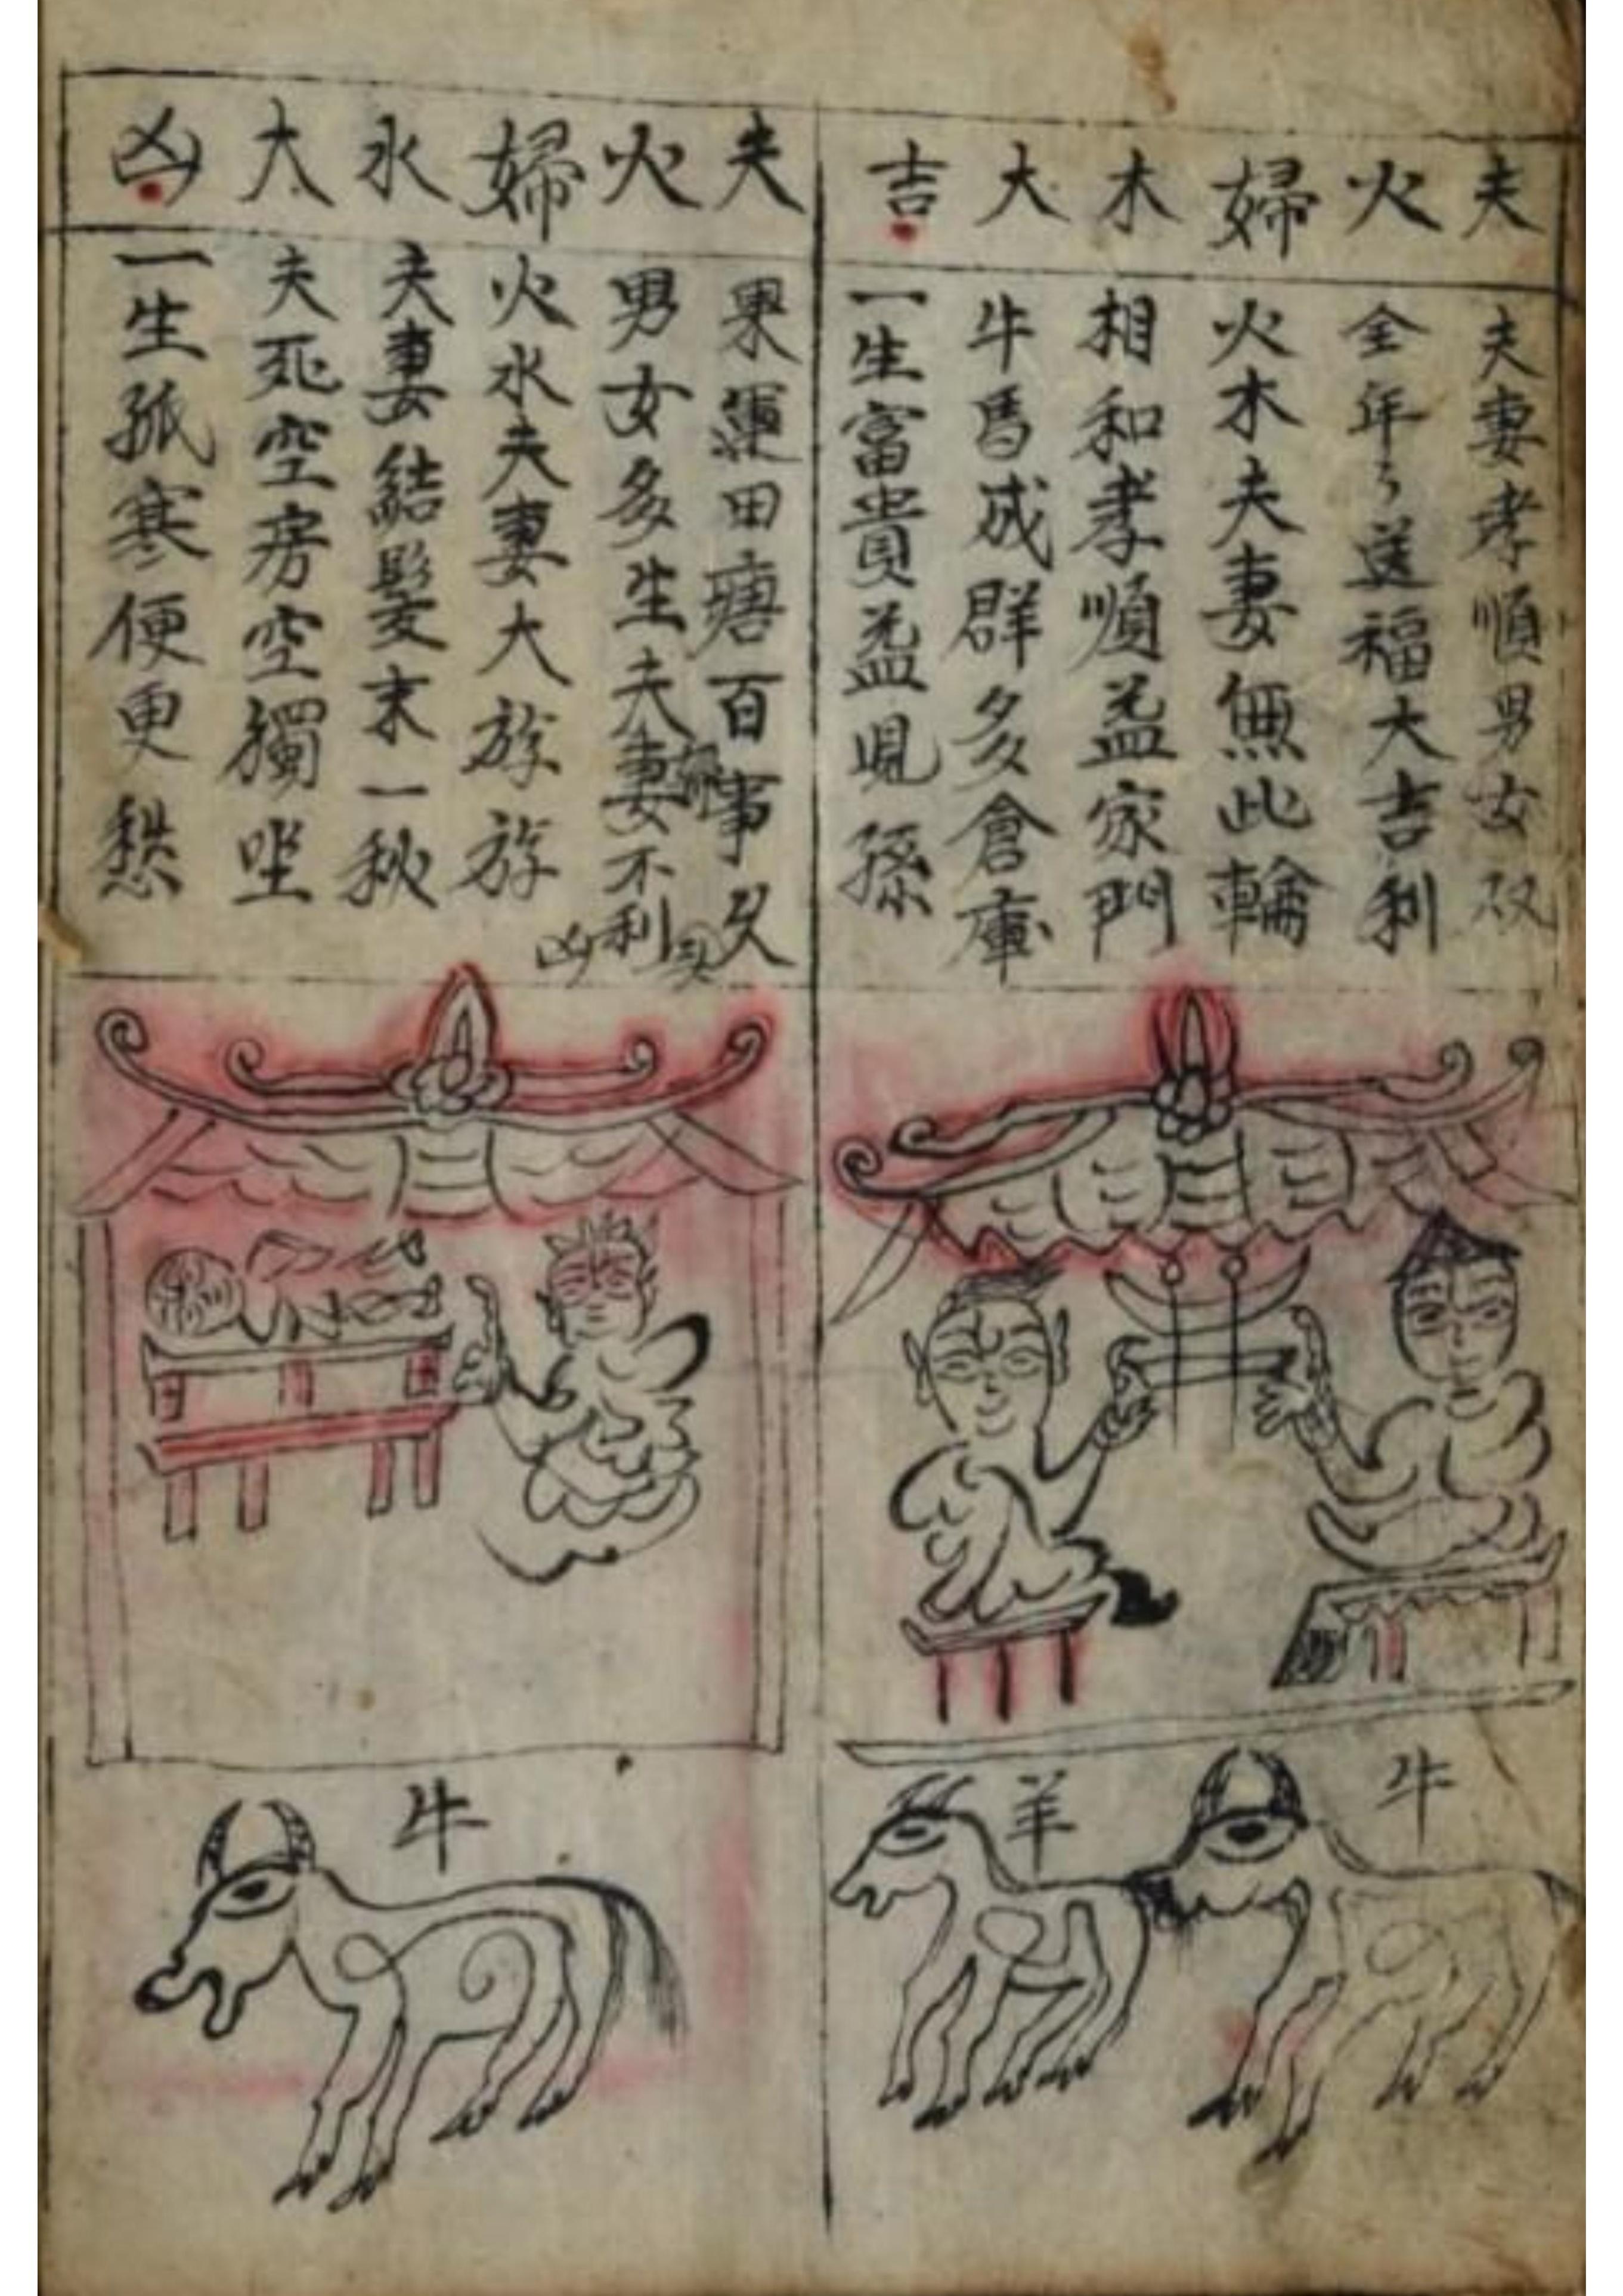 夫火婦木大吉
夫妻孝順男女双
全年々送福大吉利
火木夫妻無此輪
相和孝順益家門
牛馬成群多倉庫
一生富貴益見孫
牛
羊
夫火婦水大凶
累運田瘩百事久
男女多生夫妻不利
凶
火水夫妻大族族
夫妻結髮末一秋
夫死空房空獨坐
一生孤寒便更愁
牛